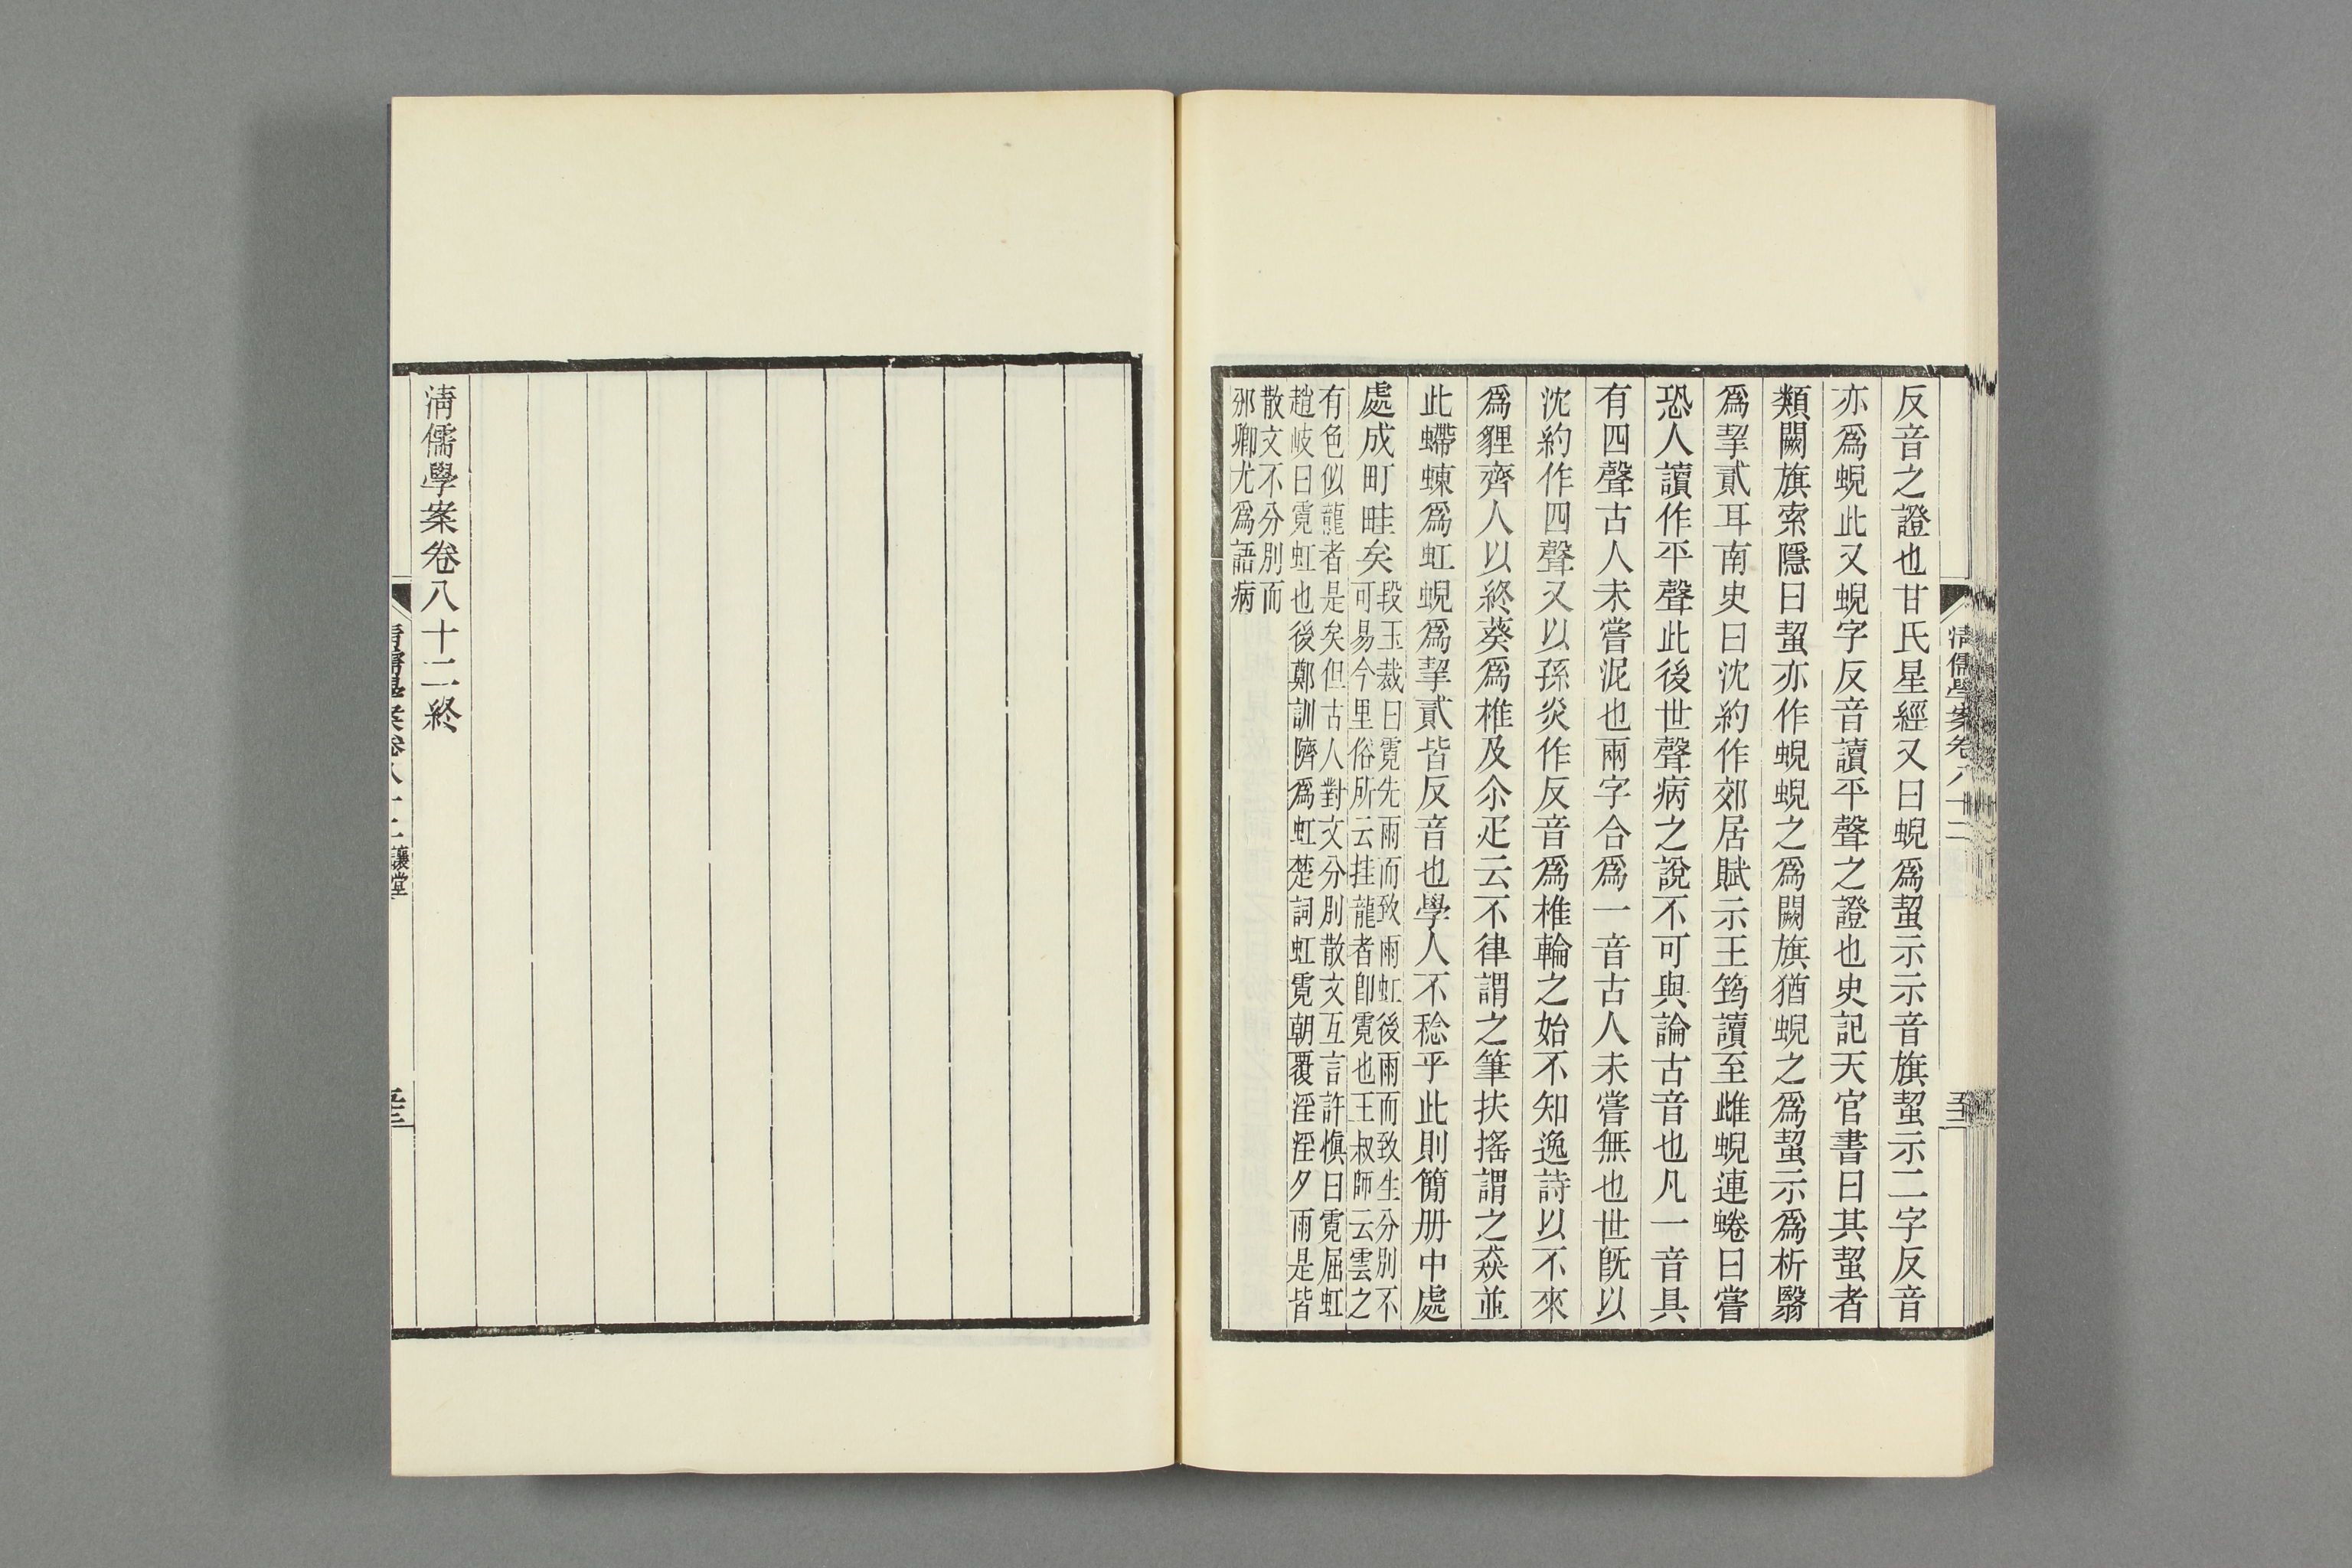 清儒學案卷八十二
反音之證也甘氏星經又曰蜺爲蛪示示音旗蛪示二字反音
亦爲蜺此又蜺字反音讀平聲之證也史記天官書曰其蛪者
類闕旗索隱曰蛪亦作蜺蜺之爲闕旗猶蜺之爲蛪示爲析翳
爲挈貳耳南史曰沈約作郊居賦示王筠讀至雌蜺連蜷曰嘗
恐人讀作平聲此後世聲病之說不可與論古音也凡一音具
有四聲古人未嘗泥也兩字合爲一音古人未嘗無也世旣以
沈約作四聲又以孫炎作反音爲椎輪之始不知逸詩以不來
爲貍齊人以終葵爲椎及尒疋云不律謂之筆扶搖謂之猋並
此螮蝀爲虹蜺爲挈貳皆反音也學人不稔乎此則簡册中處
處成町畦矣
段玉裁曰霓先雨而致雨虹後雨而致生分別不
可易今里俗所云挂龍者卽霓也王叔師云雲之
有色似龍者是矣但古人對文分別散文互言許愼曰霓屈虹
趙岐曰霓虹也後鄭訓隮爲虹楚詞虹霓朝覆淫淫夕雨是皆
散文不分別而
邪卿尤爲語病
清儒學案卷八十二終
讓堂